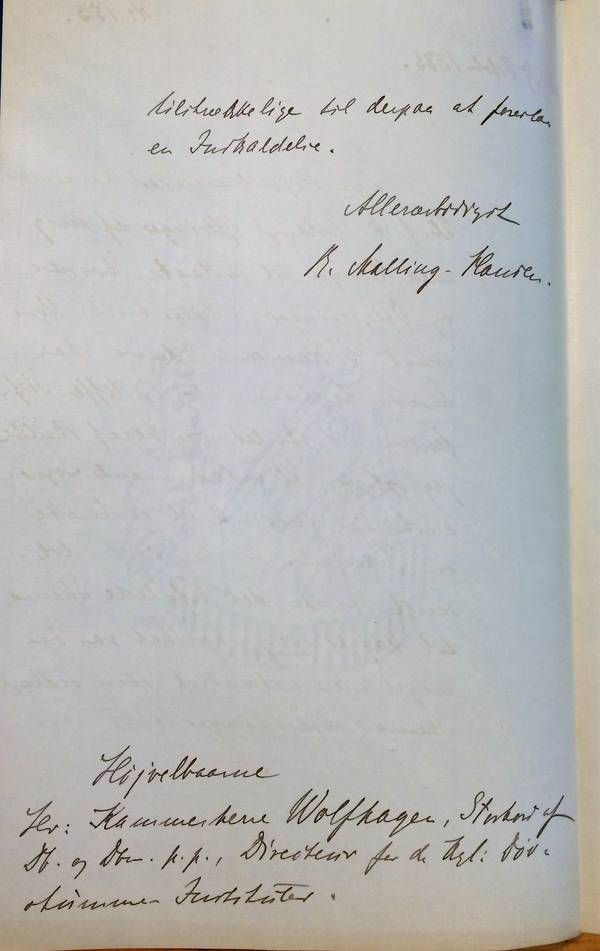 tilstrækkelige til derpaa at foreslaa
en Indkaldelse.
Allerærbødigst
R. Malling-Hansen.
Højvelbaarne
Hr: Kammerherre Wolfhagen, Storkors af
Db. og Dbm. p.p., Directeur for de Kgl: Døv-
stumme-Instituter.